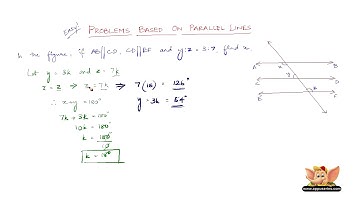 Easy!
PROBLEMS BASED ON PARALLEL LINES
In the figure, if AB||CD, CD||EF and y:z = 3:7, find x.
Let y = 3k and z = 7k
x = z ⇒ x = 7k ⇒ 7(18) = 126°
∴ x+y = 180° y = 3k = 54°
7k + 3k = 180°
10k = 180°
k = 180°
10
k = 18°
A B
C D
E F
x
y
z
www.appuseries.com